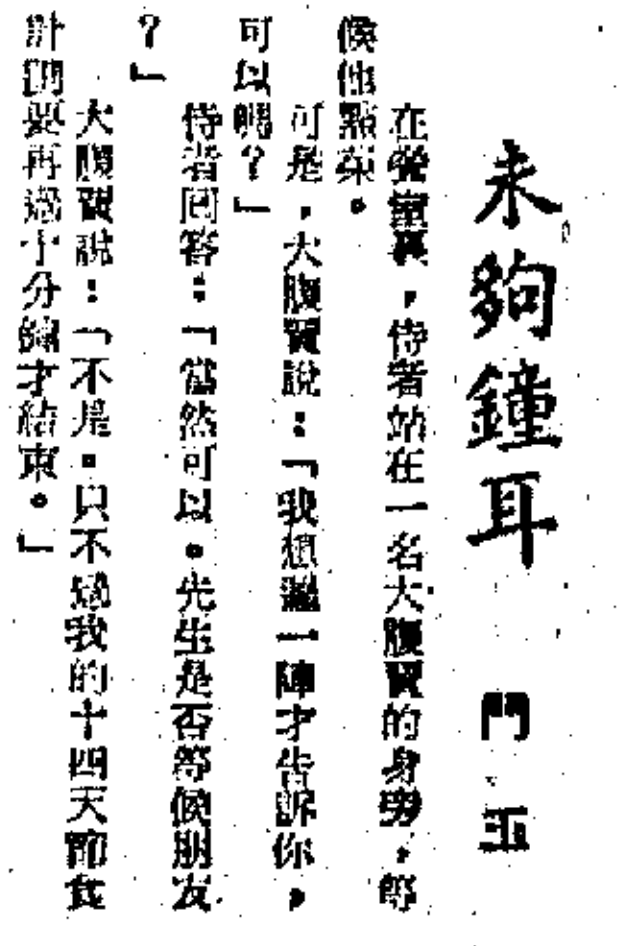 未夠鐘耳
門玉
在餐室裏,侍者站在一名大腹賈的身旁,等
候他點菜。
可是,大腹賈說:「我想過一陣才告訴你,
可以嗎?」
侍者回答:「當然可以。先生是否等候朋友
?」
大腹賈說:「不是。只不過我的十四天節食
計劃要再過十分鐘才結束。」